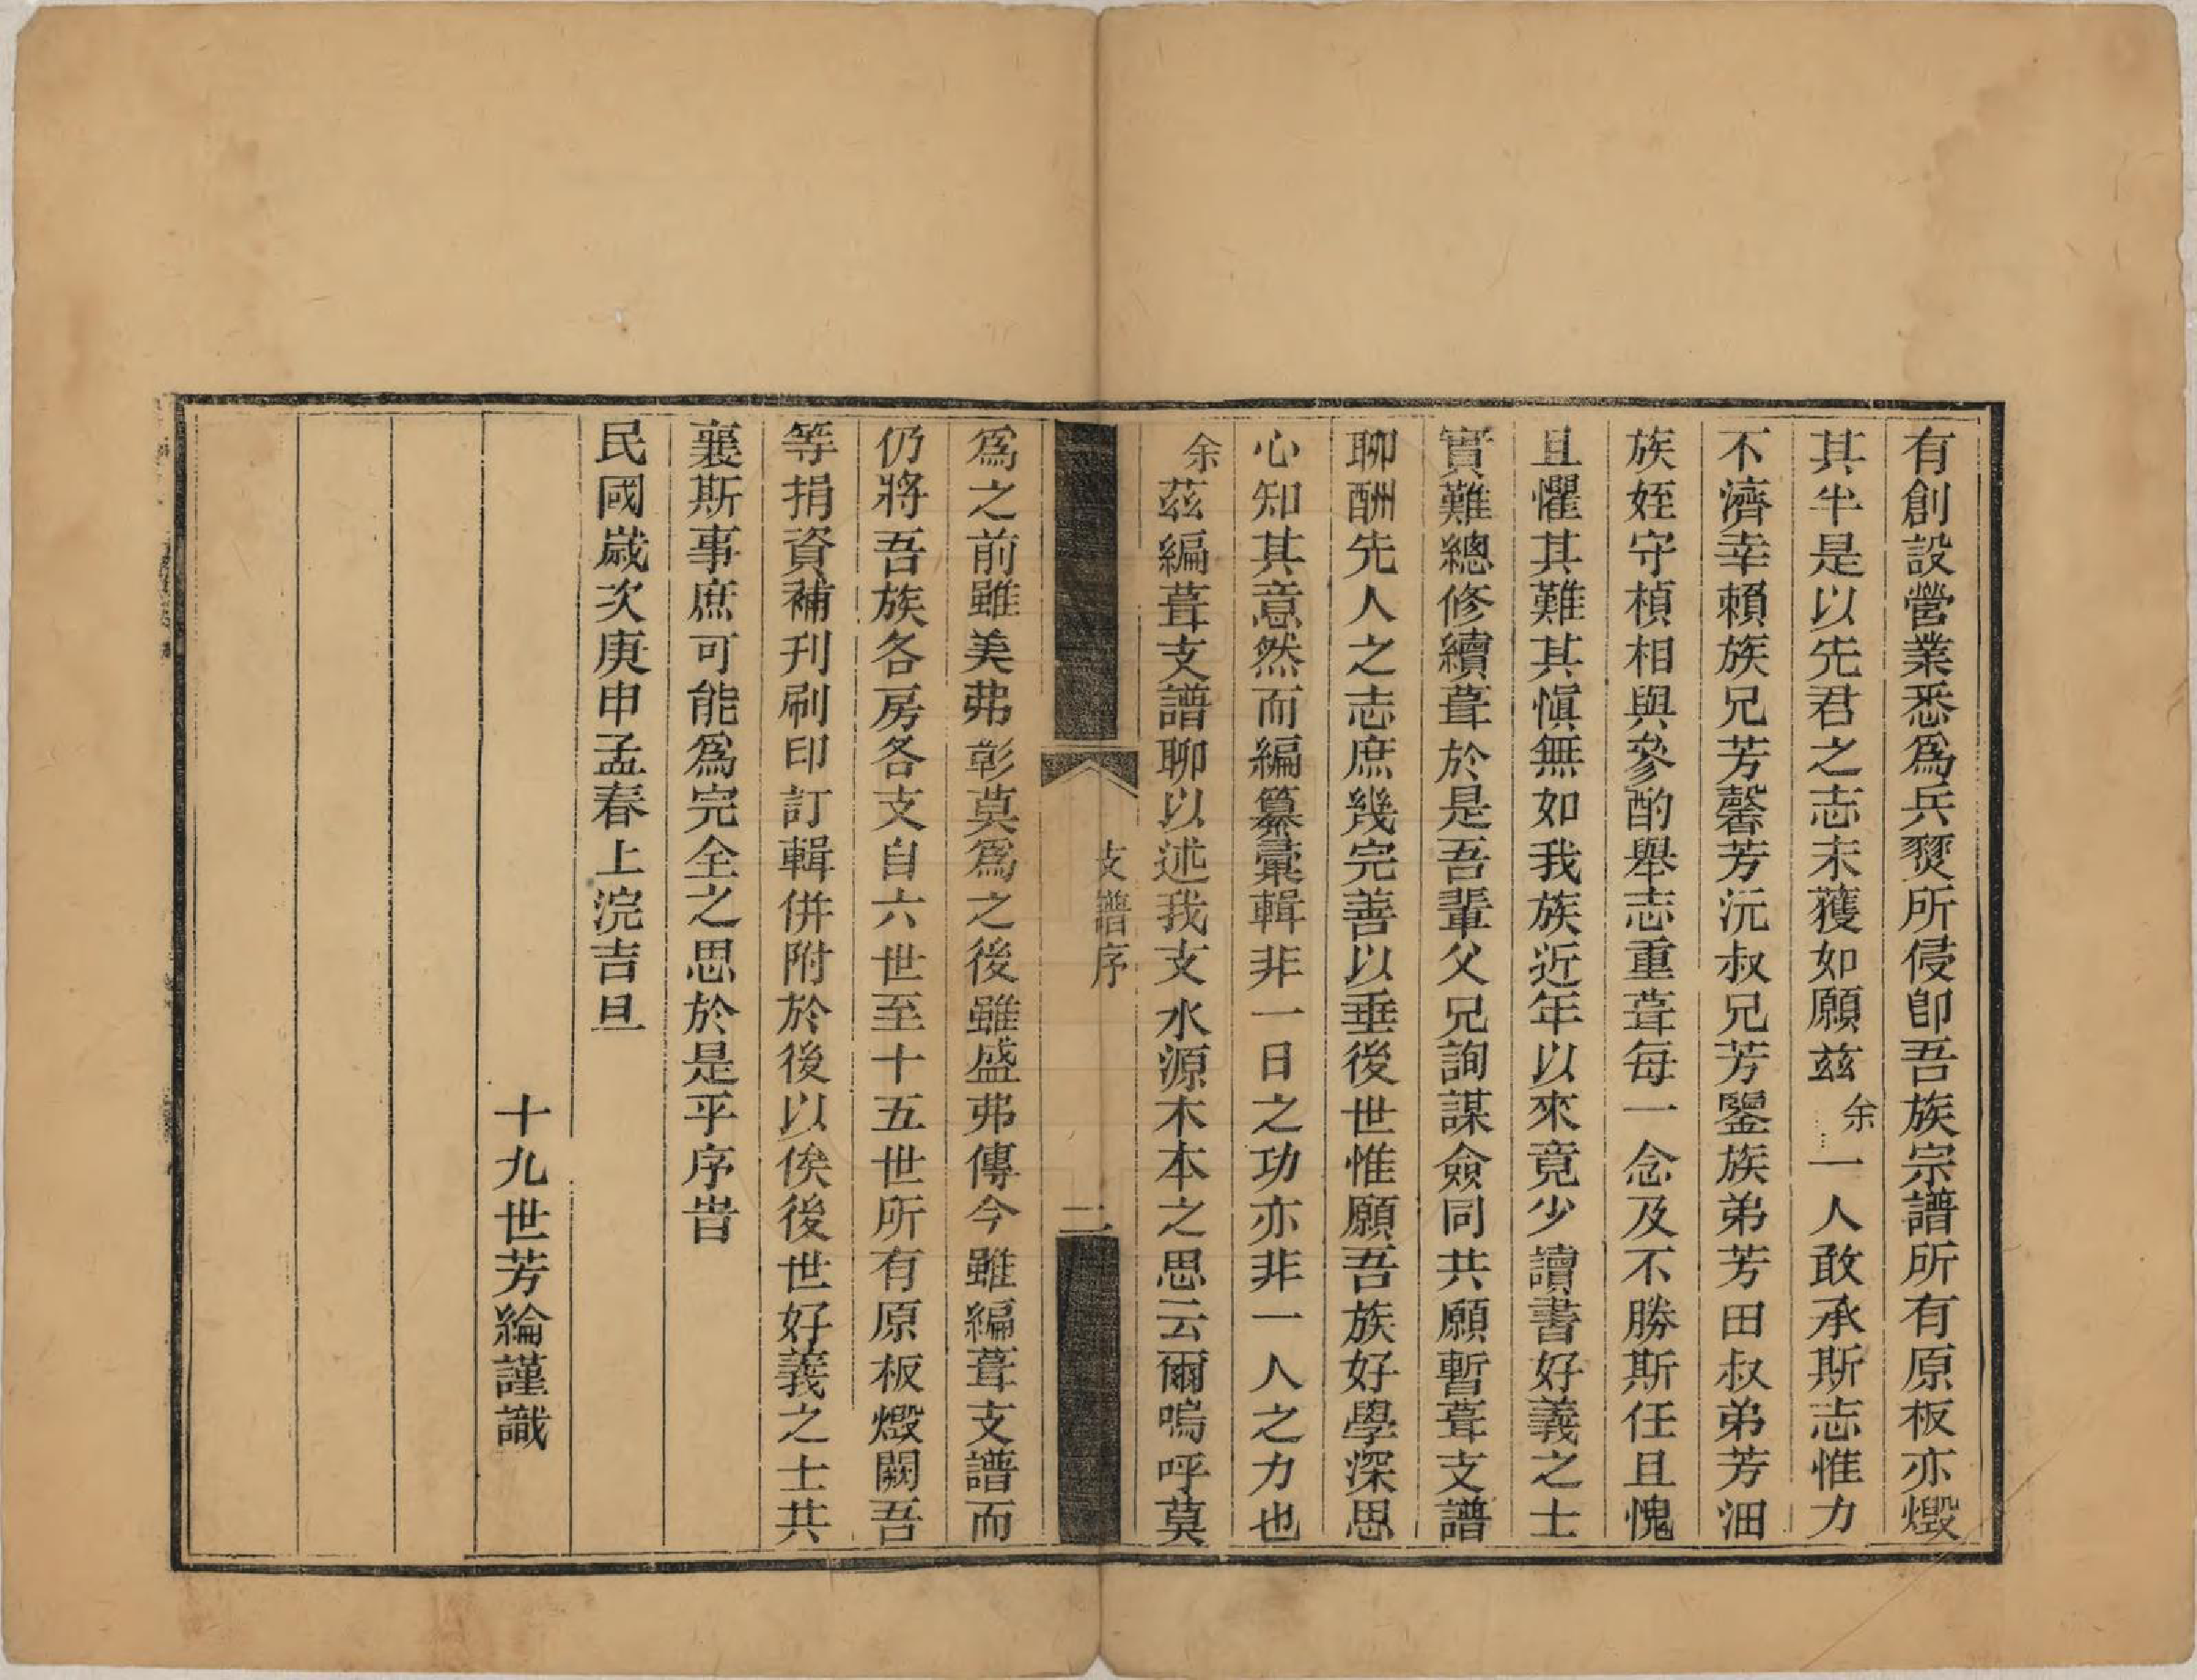 有創設營業悉爲兵燹所侵卽吾族宗譜所有原板亦燬
其半是以先君之志未獲如願茲余一人敢承斯志惟力
不濟幸賴族兄芳馨芳沅叔兄芳鑒族弟芳田叔弟芳沺
族姪守楨相與參酌舉志重葺每一念及不勝斯任且愧
且懼其難其愼無如我族近年以來竟少讀書好義之士
實難總修續葺於是吾輩父兄詢謀僉同共願暫葺支譜
聊酬先人之志庶幾完善以垂後世惟願吾族好學深思
心知其意然而編纂彙輯非一日之功亦非一人之力也
余茲編葺支譜聊以述我支水源木本之思云爾嗚呼莫
支譜序 二
爲之前雖美弗彰莫爲之後雖盛弗傳今雖編葺支譜而
仍將吾族各房各支自六世至十五世所有原板燬闕吾
等捐資補刊刷印訂輯併附於後以俟後世好義之士共
襄斯事庶可能爲完全之思於是乎序旹
民國歲次庚申孟春上浣吉旦
十九世芳綸謹識